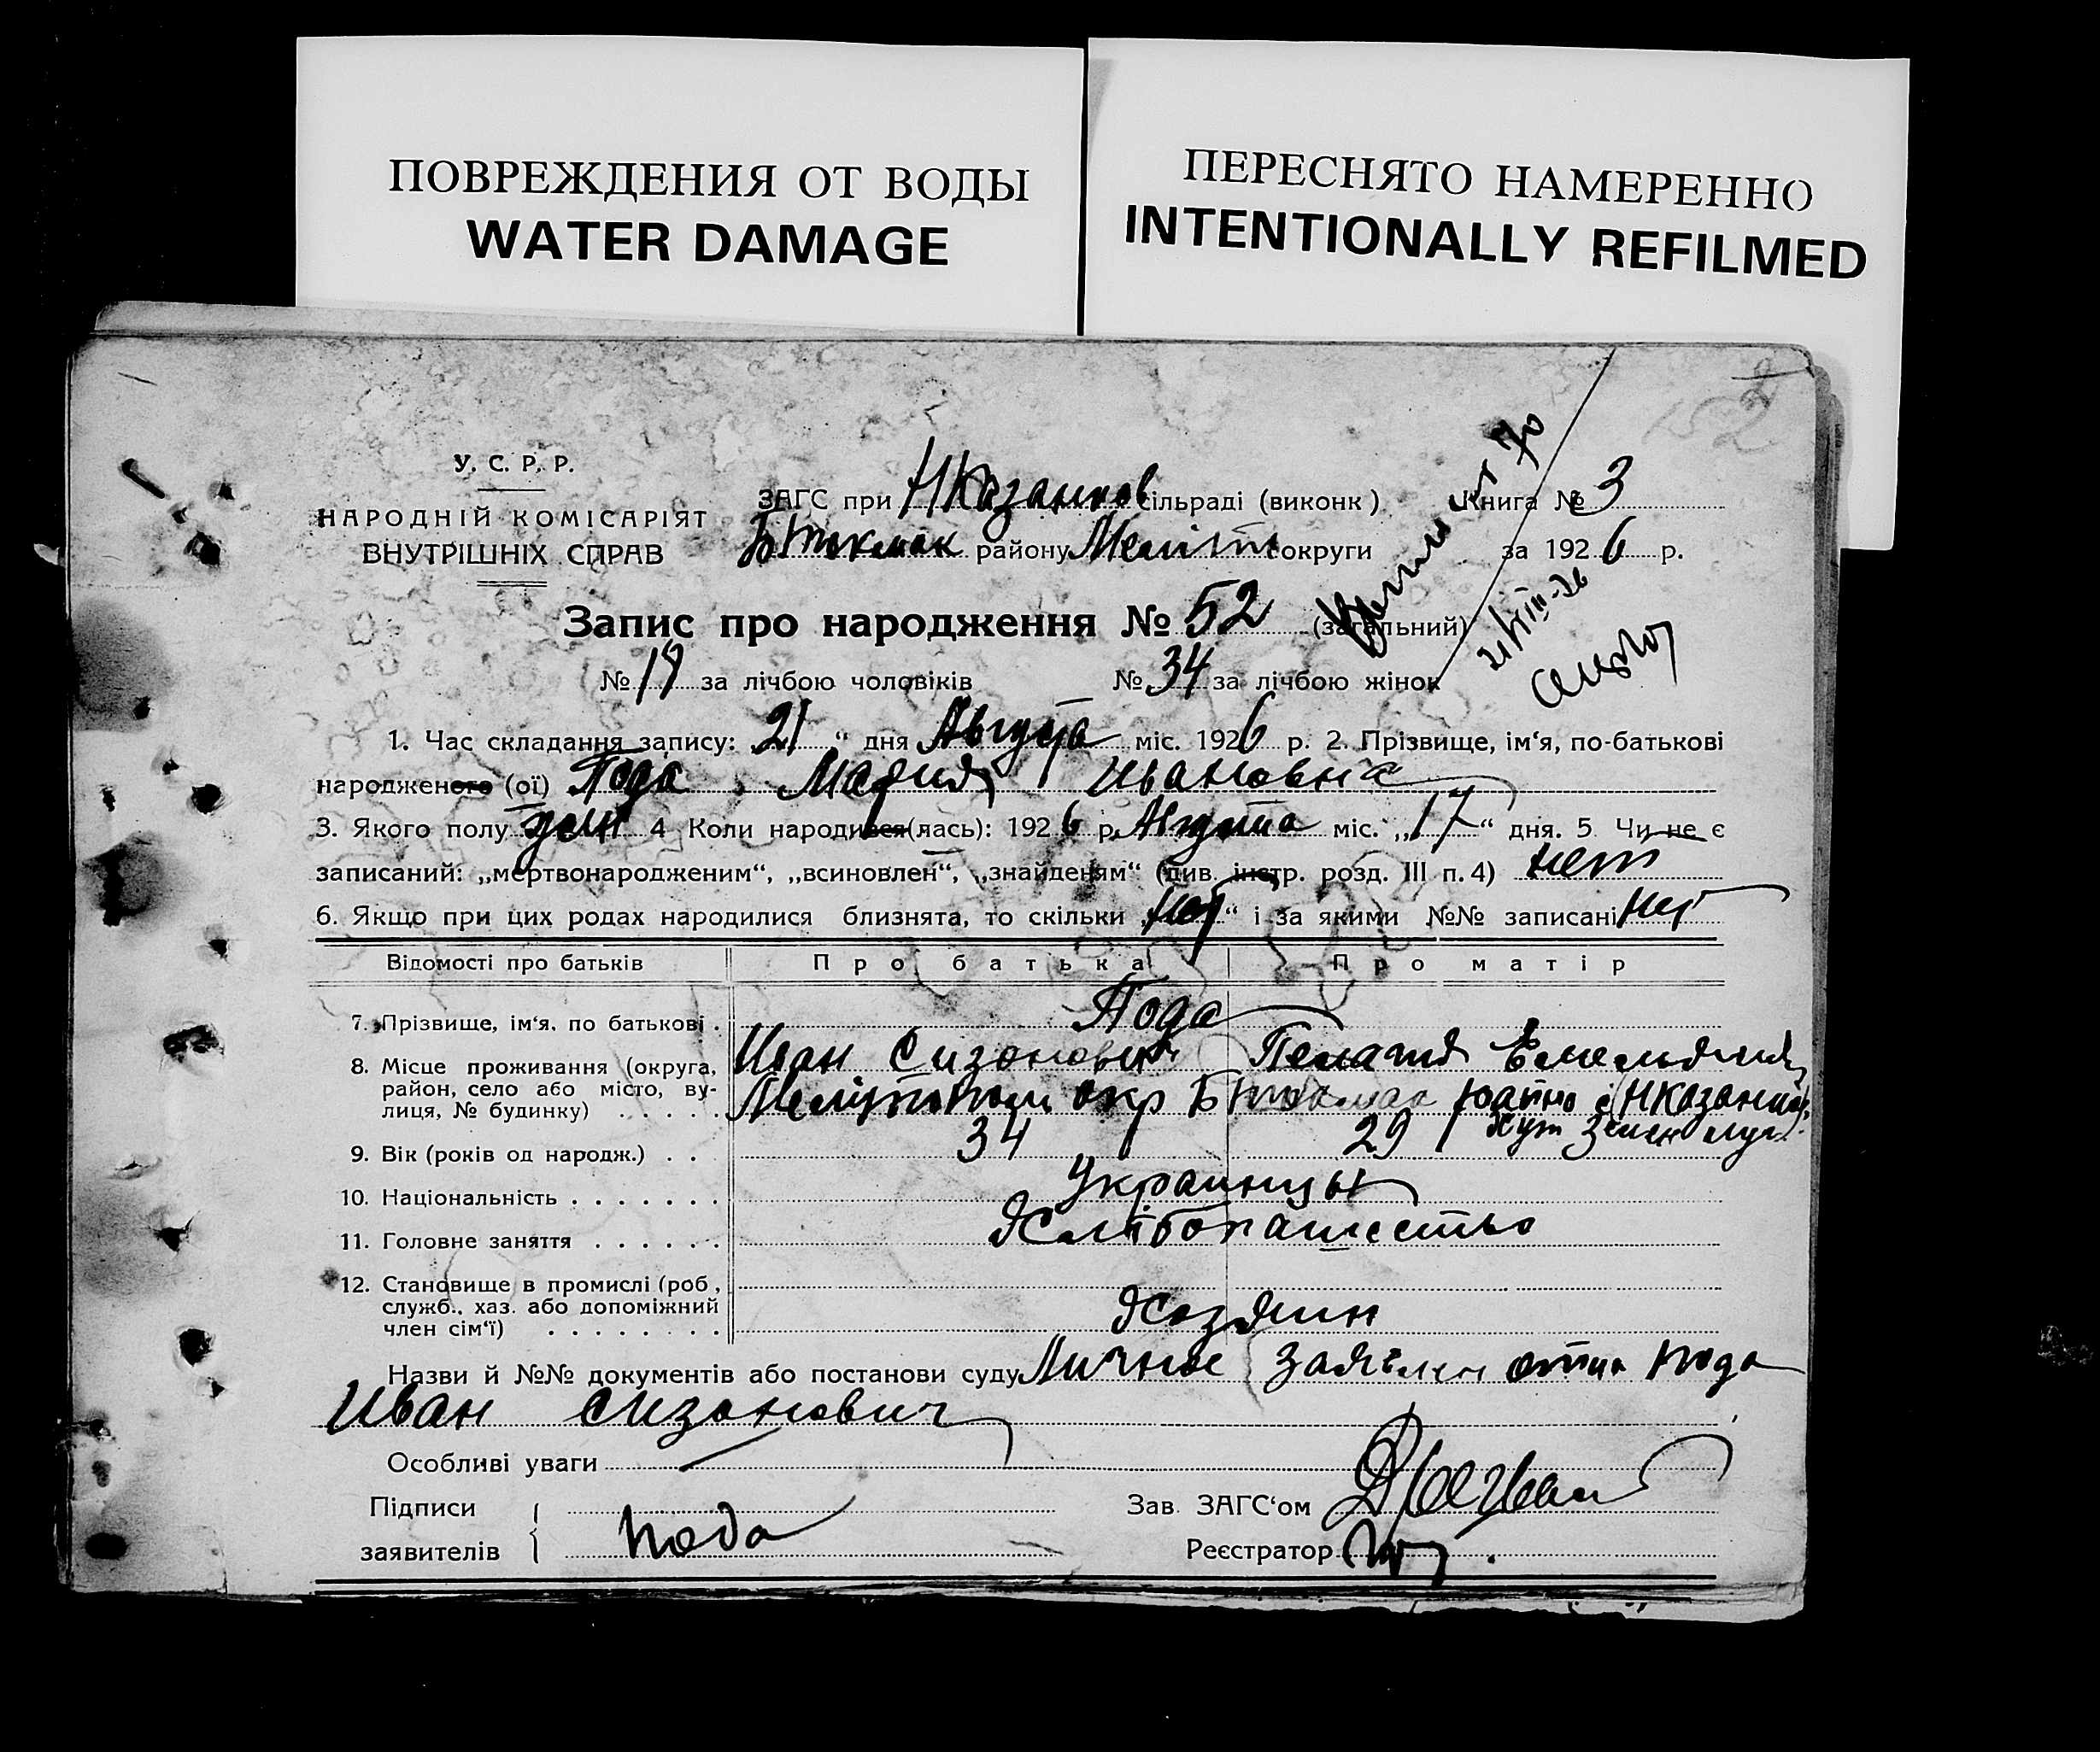 ПОВРЕЖДЕНИЯ ОТ ВОДЫ
WATER DAMAGE
ПЕРЕСНЯТО НАМЕРЕННО
INTENTIONALLY REFILMED
152
У. С. Р. Р.
НАРОДНІЙ КОМІСАРІЯТ
ВНУТРІШНІХ СПРАВ
ЗАГС при НКазанков сільраді (виконк) Книга № 3
БТокмак району Меліт округи за 1926 р.
Запис про народження № 52 (загальний)
№ 19 за лічбою чоловіків № 34 за лічбою жінок
21/VIII-26
1. Час складання запису: 21 “ дня Августа міс. 1926 р. 2. Прізвище, ім‘я, по-батькові
народженого (ої) Пода Мария Ивановна
3. Якого полу жен 4 Коли народився(лась): 1926 р. Августа міс. „17“ дня. 5 Чи не є
записаний: „мертвонародженим“, „всиновлен“, „знайденям“ (див. інстр. розд. III п. 4) нет
6. Якщо при цих родах народилися близнята, то скільки „нет“ і за якими №№ записані нет
Відомості про батьків Про батька Про матір
7. Прізвище, ім‘я, по батькові . Пода
Иван Сизонович Пелагия Емельяновна
8. Місце проживання (округа, район, село або місто, ву-лиця, № будинку) . . . . . Мелітопол окр БТокмак район с НКазанков
хут Зелен луг
9. Вік (років од народж.) . . 34 29
10. Національність . . . . . . . Украинцы
11. Головне заняття . . . . . . Хлібопашество
12. Становище в промислі (роб, служб., хаз. або допоміжний член сім‘ї) . . . . . . . . Хозяин
Назви й №№ документів або постанови суду Личное заявлен отца Пода
Иван Сизонович
Особливі уваги
Підписи
заявителів Пода
Зав. ЗАГС‘ом
Реєстратор